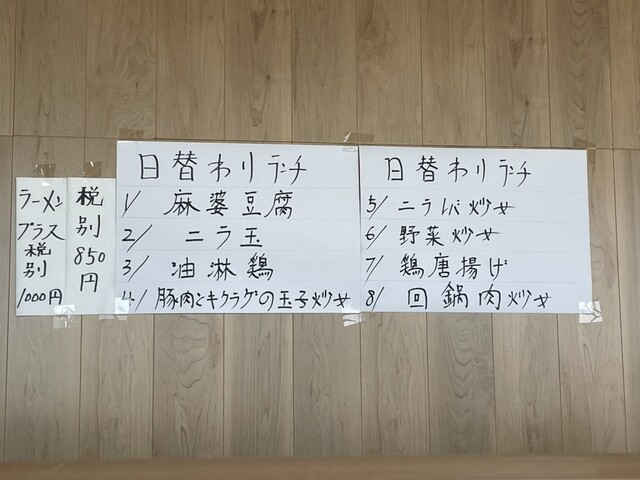 ラーメン
プラス
税
別
1000円
税
別
850
円
日替わりランチ
1/ 麻婆豆腐
2/ ニラ玉
3/ 油淋鶏
4/ 豚肉とキクラゲの玉子炒め
日替わりランチ
5/ ニラレバ炒め
6/ 野菜炒め
7/ 鶏唐揚げ
8/ 回鍋肉炒め